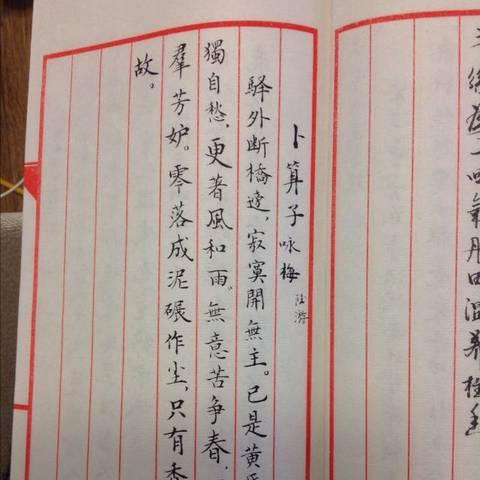 氣丹田温養
卜算子 咏梅 陸游
驿外断橋邊，寂寞開無主。已是黄
獨自愁，更著風和雨。無意苦争春，
羣芳妒。零落成泥碾作尘，只有香
故。